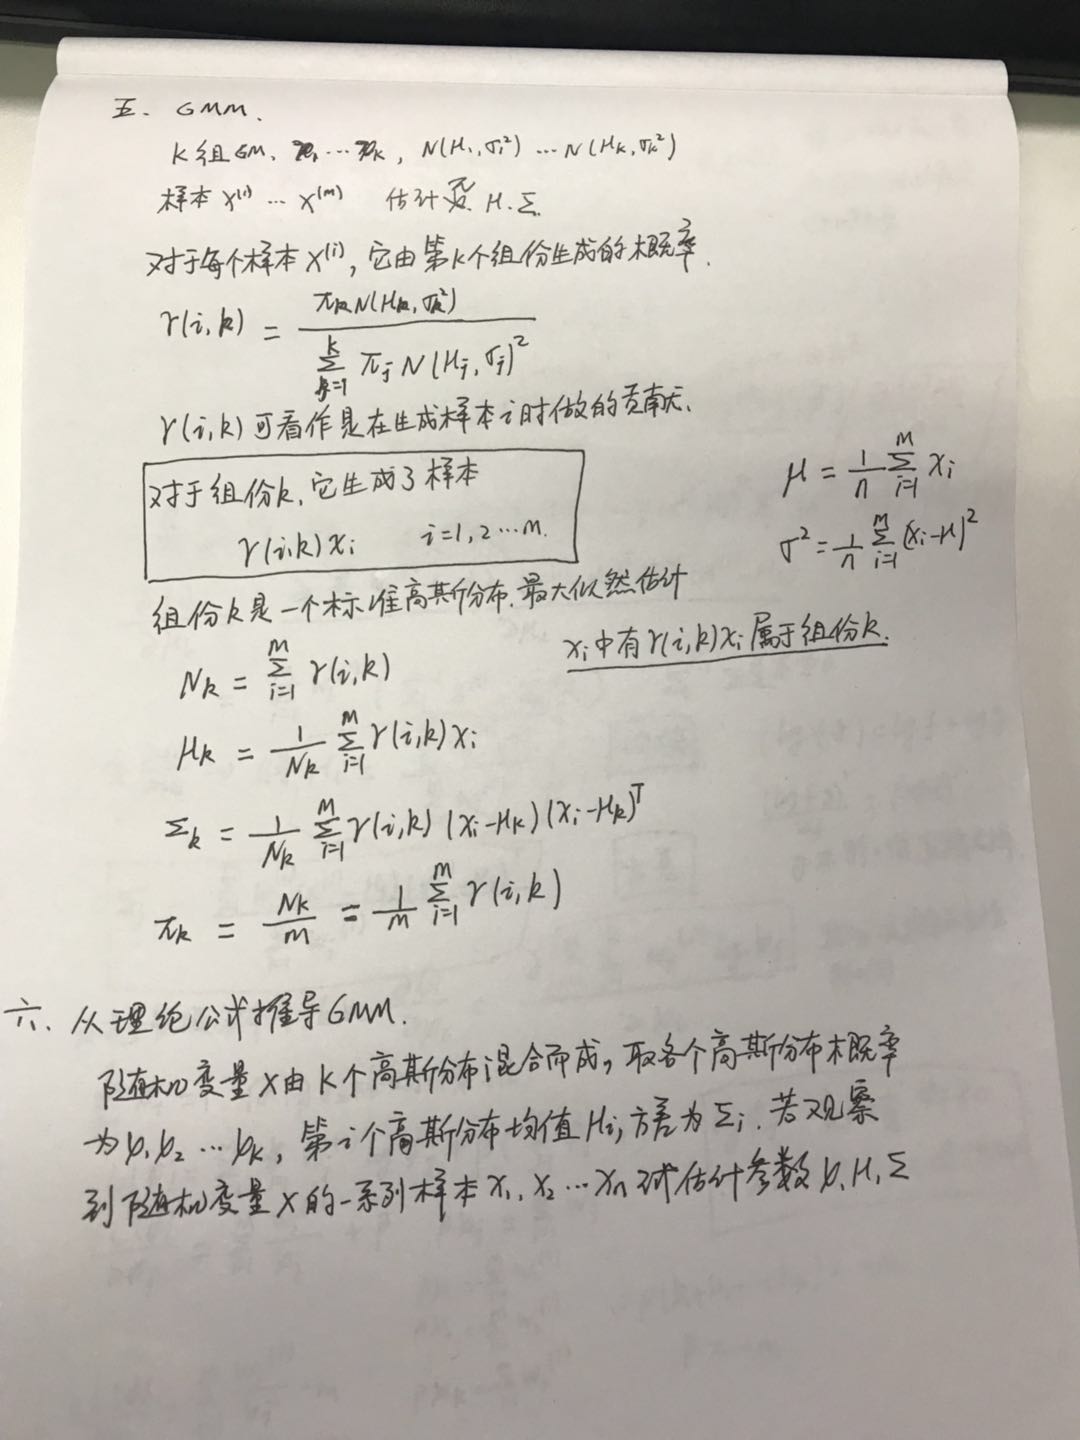 五、GMM.
K组GM、π₁…πₖ, N(μ₁,σ₁²)…N(μₖ,σₖ²)
样本 X⁽¹⁾…X⁽ᵐ⁾ 估计 π. μ. Σ.
对于每个样本X⁽ⁱ⁾, 它由第K个组份生成的概率.
γ(i,k) = πₖN(μₖ,σₖ²) / Σ_{j=1}^{k} πⱼN(μⱼ,σⱼ)²
γ(i,k)可看作是在生成样本i时做的贡献.
对于组份k, 它生成了样本
γ(i,k)xᵢ i=1,2…m.
μ = 1/n Σ_{i=1}^{M} xᵢ
σ² = 1/n Σ_{i=1}^{M} (xᵢ-μ)²
组份k是一个标准高斯分布. 最大似然估计
xᵢ中有γ(i,k)xᵢ属于组份k.
Nₖ = Σ_{i=1}^{M} γ(i,k)
μₖ = 1/Nₖ Σ_{i=1}^{M} γ(i,k)xᵢ
Σₖ = 1/Nₖ Σ_{i=1}^{M} γ(i,k)(xᵢ-μₖ)(xᵢ-μₖ)ᵀ
πₖ = Nₖ/m = 1/m Σ_{i=1}^{M} γ(i,k)
六、从理论公式推导GMM.
随机变量X由K个高斯分布混合而成, 取各个高斯分布概率
为φ₁φ₂…φₖ, 第i个高斯分布均值μᵢ, 方差为Σᵢ. 若观察
到随机变量X的一系列样本x₁, x₂…xₙ 试估计参数φ, μ, Σ